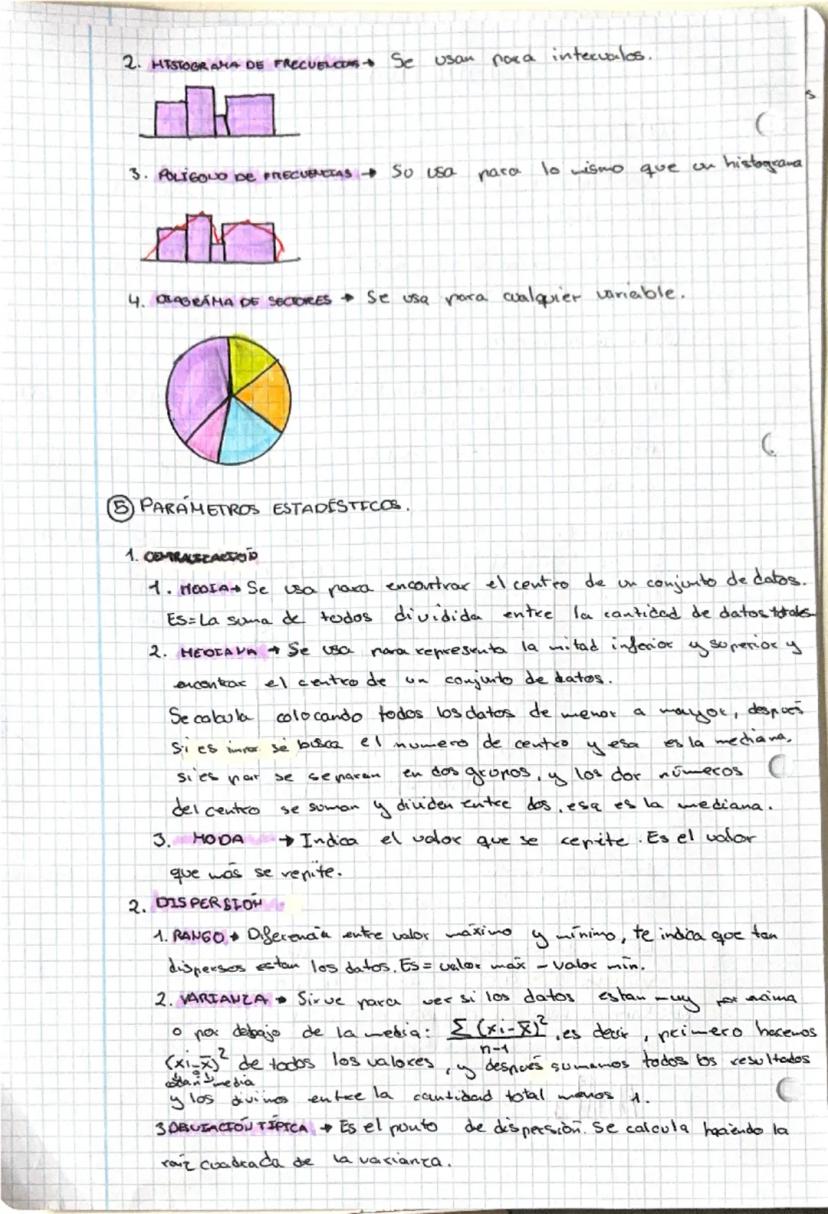 2. HISTOGRAMA DE FRECUENCIAS → Se usan para intervalos.
3. POLÍGONO DE FRECUENCIAS → So usa para lo mismo que un histograma
4. DIAGRÁMA DE SECTORES → Se usa para cualquier variable.
5 PARÁMETROS ESTADÍSTICOS.
1. CENTRALIZACIÓN
1. MEDIA → Se usa para encontrar el centro de un conjunto de datos.
Es = La suma de todos dividida entre la cantidad de datos totales
2. MEDIANA → Se usa para representa la mitad inferior y superior y
encontrar el centro de un conjunto de datos.
Se calcula colocando todos los datos de menor a mayor, después
si es impar se busca el numero de centro y esa es la mediana,
si es par se separan en dos grupos, y los dor números
del centro se suman y dividen entre dos, esa es la mediana.
3. MODA → Indica el valor que se repite. Es el valor
que más se repite.
2. DISPERSIÓN
1. RANGO → Diferencia entre valor máximo y mínimo, te indica que tan
dispersos estan los datos. Es = valor máx - valor mín.
2. VARIANZA → Sirve para ver si los datos estan muy por encima
o por debajo de la media: Σ(xi-x̄)² / n-1, es decir, primero hacemos
(xi-x̄)² de todos los valores, y después sumamos todos los resultados
media
y los divimos entre la cantidad total menos 1.
3 DBUIACIÓN TÍPICA → Es el punto de dispersión. Se calcula haciendo la
raíz cuadrada de la varianza.